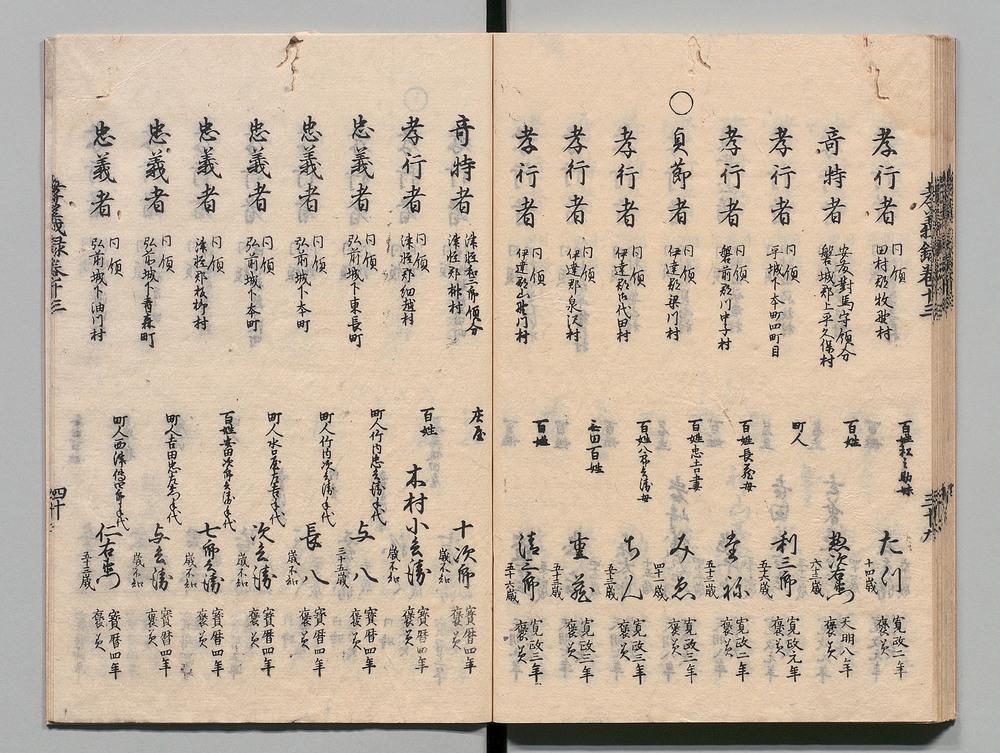 孝義録巻十三
孝行者 同領 田村郡牧野村 百姓 妹 たつ 十四歳 寛政二年 褒美
奇特者 安友對馬守領分 磐城郡上平久保村 百姓 六十三歳 天明八年 褒美
孝行者 同領 平城下本町四町目 町人 利三郎 五十六歳 寛政元年 褒美
孝行者 同領 磐前郡川中子村 百姓長蔵母 寛政二年 褒美
○貞節者 同領 伊達郡梁川村 百姓忠吉妻 みゑ 四十一歳 寛政三年 褒美
孝行者 同領 伊達郡 田村 五十三歳 寛政三年 褒美
孝行者 同領 伊達郡泉沢村 百姓 重蔵 五十三歳 寛政三年 褒美
孝行者 同領 伊達郡山野川村 百姓 清三郎 五十六歳 寛政三年 褒美
奇特者 津軽 領分 津軽郡 村 庄屋 十次郎 歳不知 寶暦四年 褒美
孝行者 同領 津軽郡細越村 百姓 木村小兵衛 歳不知 寶暦四年 褒美
忠義者 同領 弘前城下東長町 町人竹内忠兵衛手代 与八 三十五歳 寶暦四年 褒美
忠義者 同領 弘前城下本町 町人竹内次兵衛手代 長八 歳不知 寶暦四年 褒美
忠義者 同領 弘前城下本町 町人 手代 次兵衛 歳不知 寶暦四年 褒美
忠義者 同領 津軽郡板柳村 百姓安田次郎兵衛手代 七郎兵衛 歳不知 寶暦四年 褒美
忠義者 同領 弘前城下青森町 町人吉田忠左衛門手代 与兵衛 歳不知 寶暦四年 褒美
忠義者 同領 弘前城下油川村 町人西津 手代 仁右衛門 五十三歳 寶暦四年 褒美
孝義録巻十三
四十